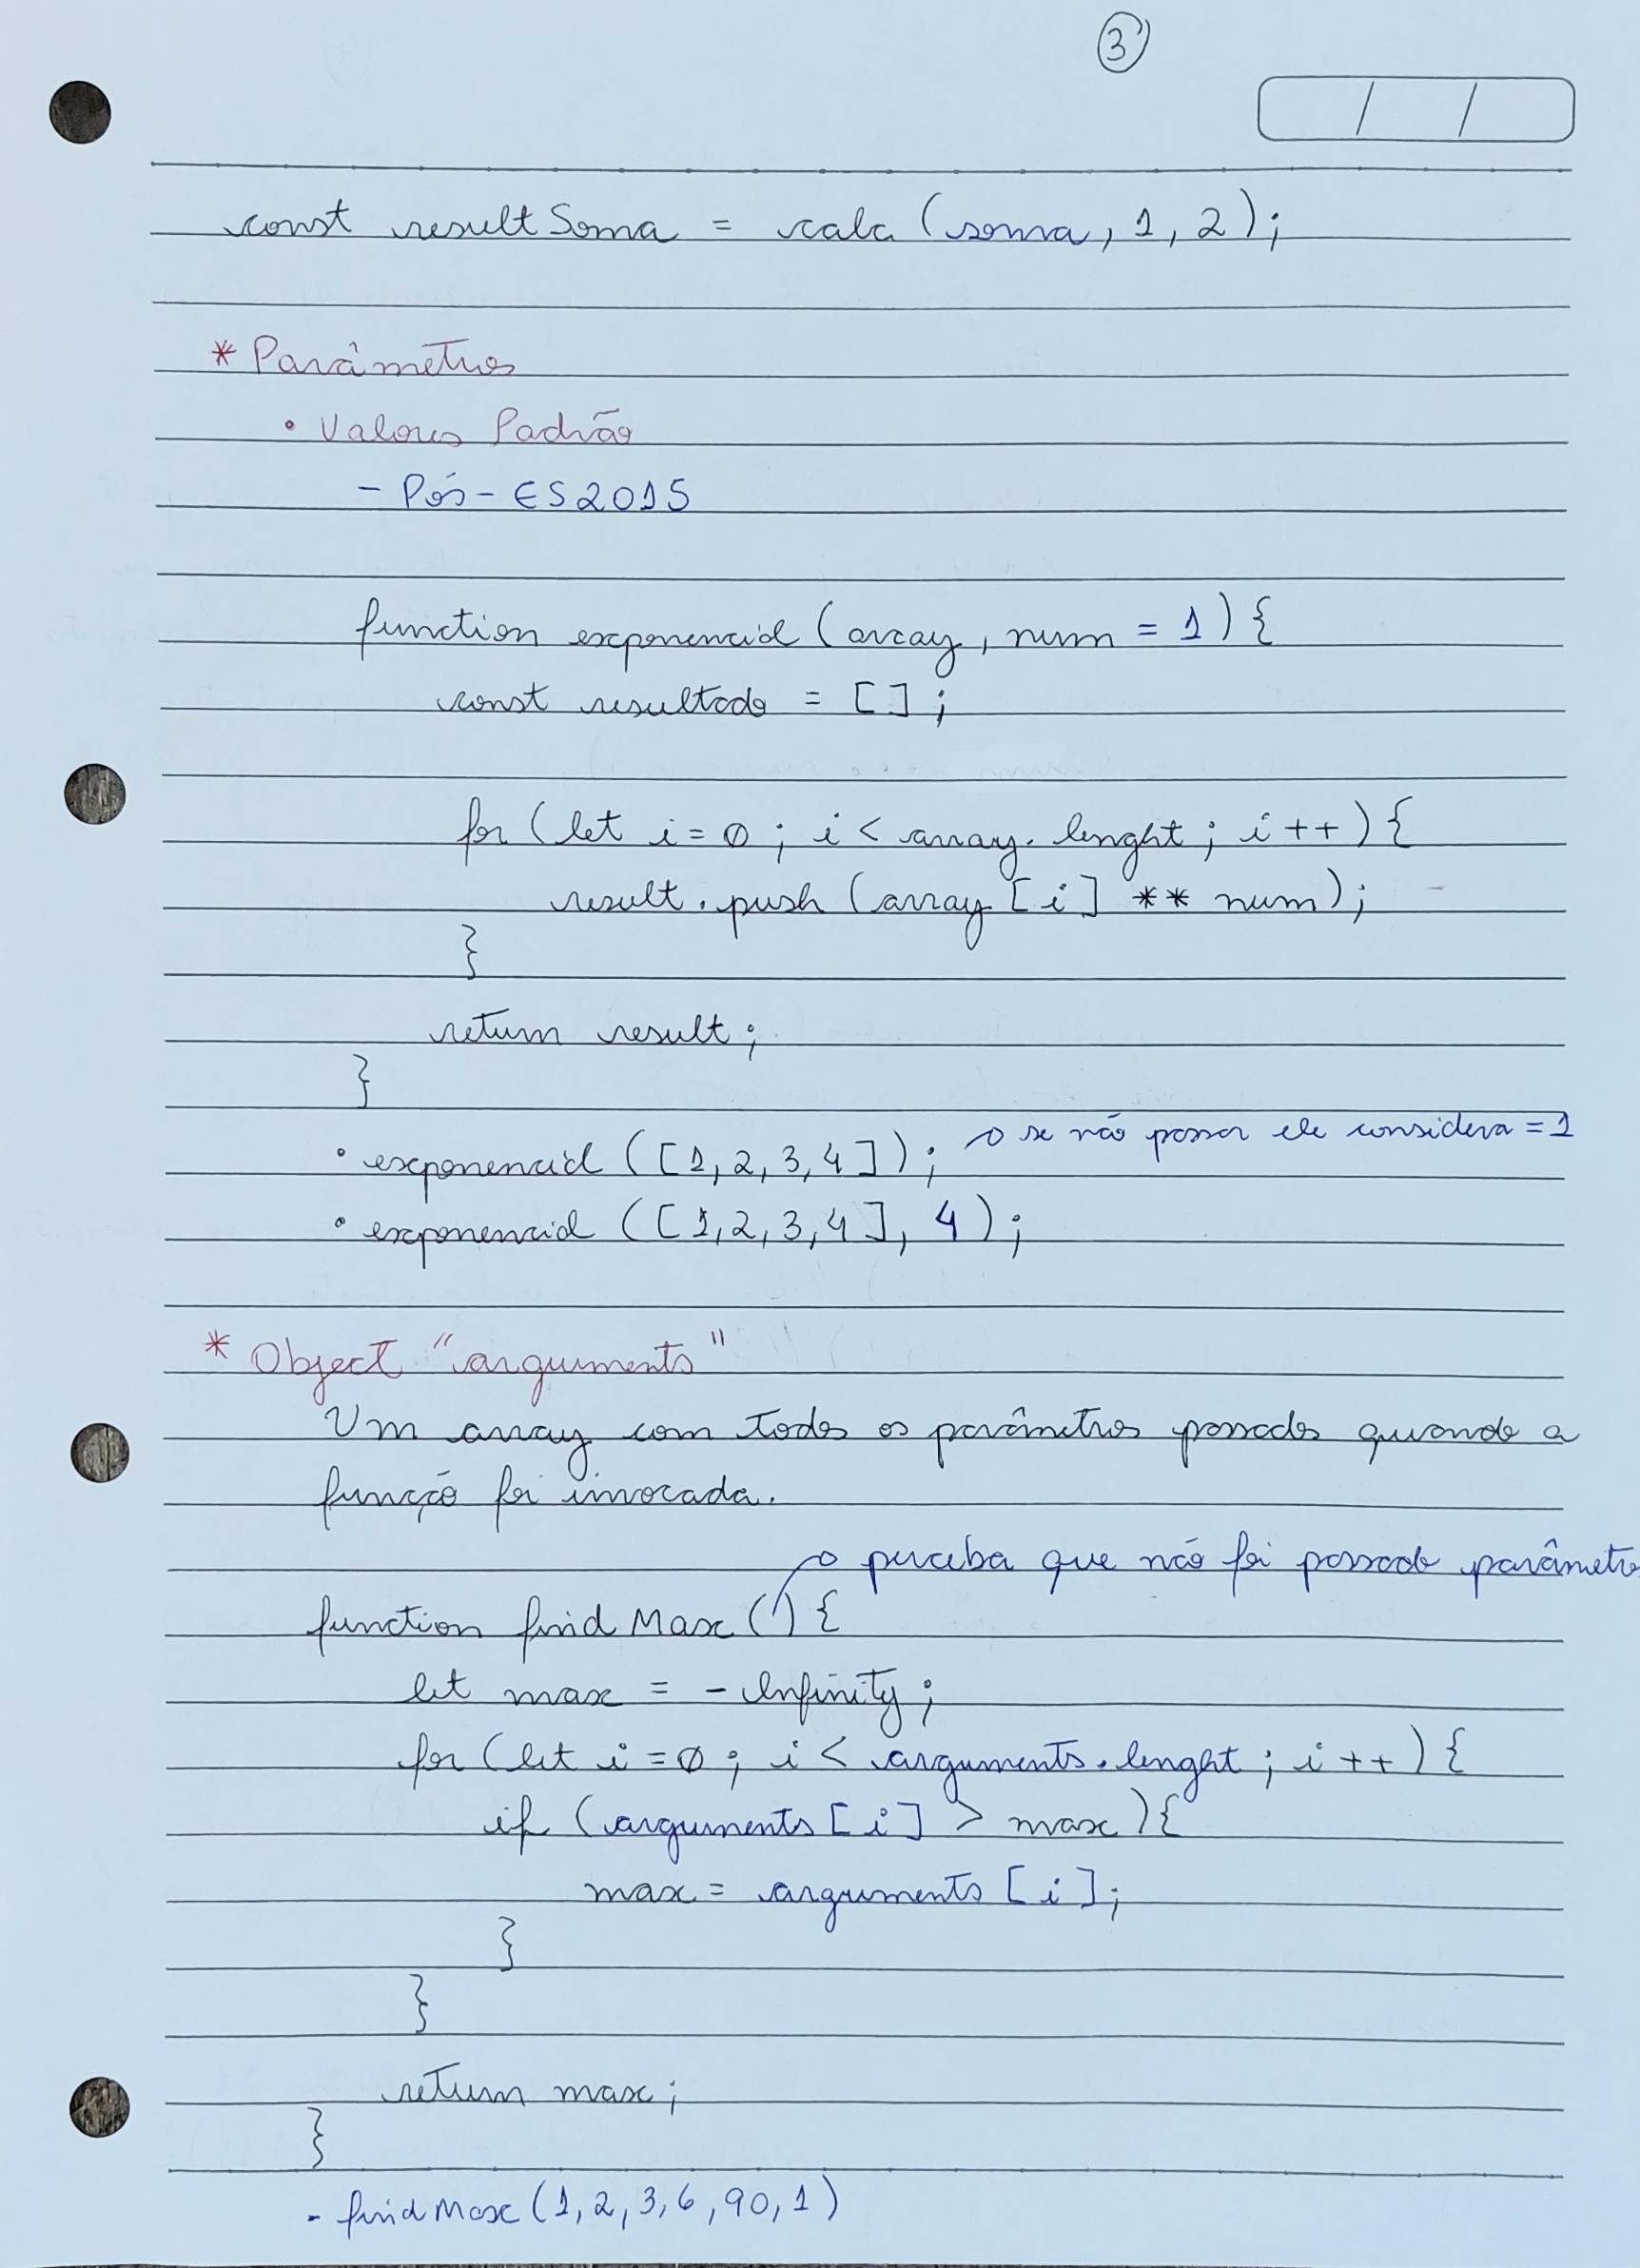 3
/ /
const resultSoma = calc (soma, 1, 2);
* Parâmetros
• Valores Padrão
- Pós-ES2015
function exponencial (array, num = 1) {
const resultado = [];
for (let i = 0; i < array.lenght; i++) {
result.push (array [i] ** num);
}
return result;
}
se não passar ele considera = 1
• exponencial ([1, 2, 3, 4]);
• exponencial ([1, 2, 3, 4], 4);
* Object "arguments"
Um array com todos os parâmetros passados quando a
função foi invocada.
perceba que não foi passado parâmetro
function findMax () {
let max = - Infinity;
for (let i = 0; i < arguments.lenght; i++) {
if (arguments [i] > max) {
max = arguments [i];
}
}
return max;
}
- findMax (1, 2, 3, 6, 90, 1)